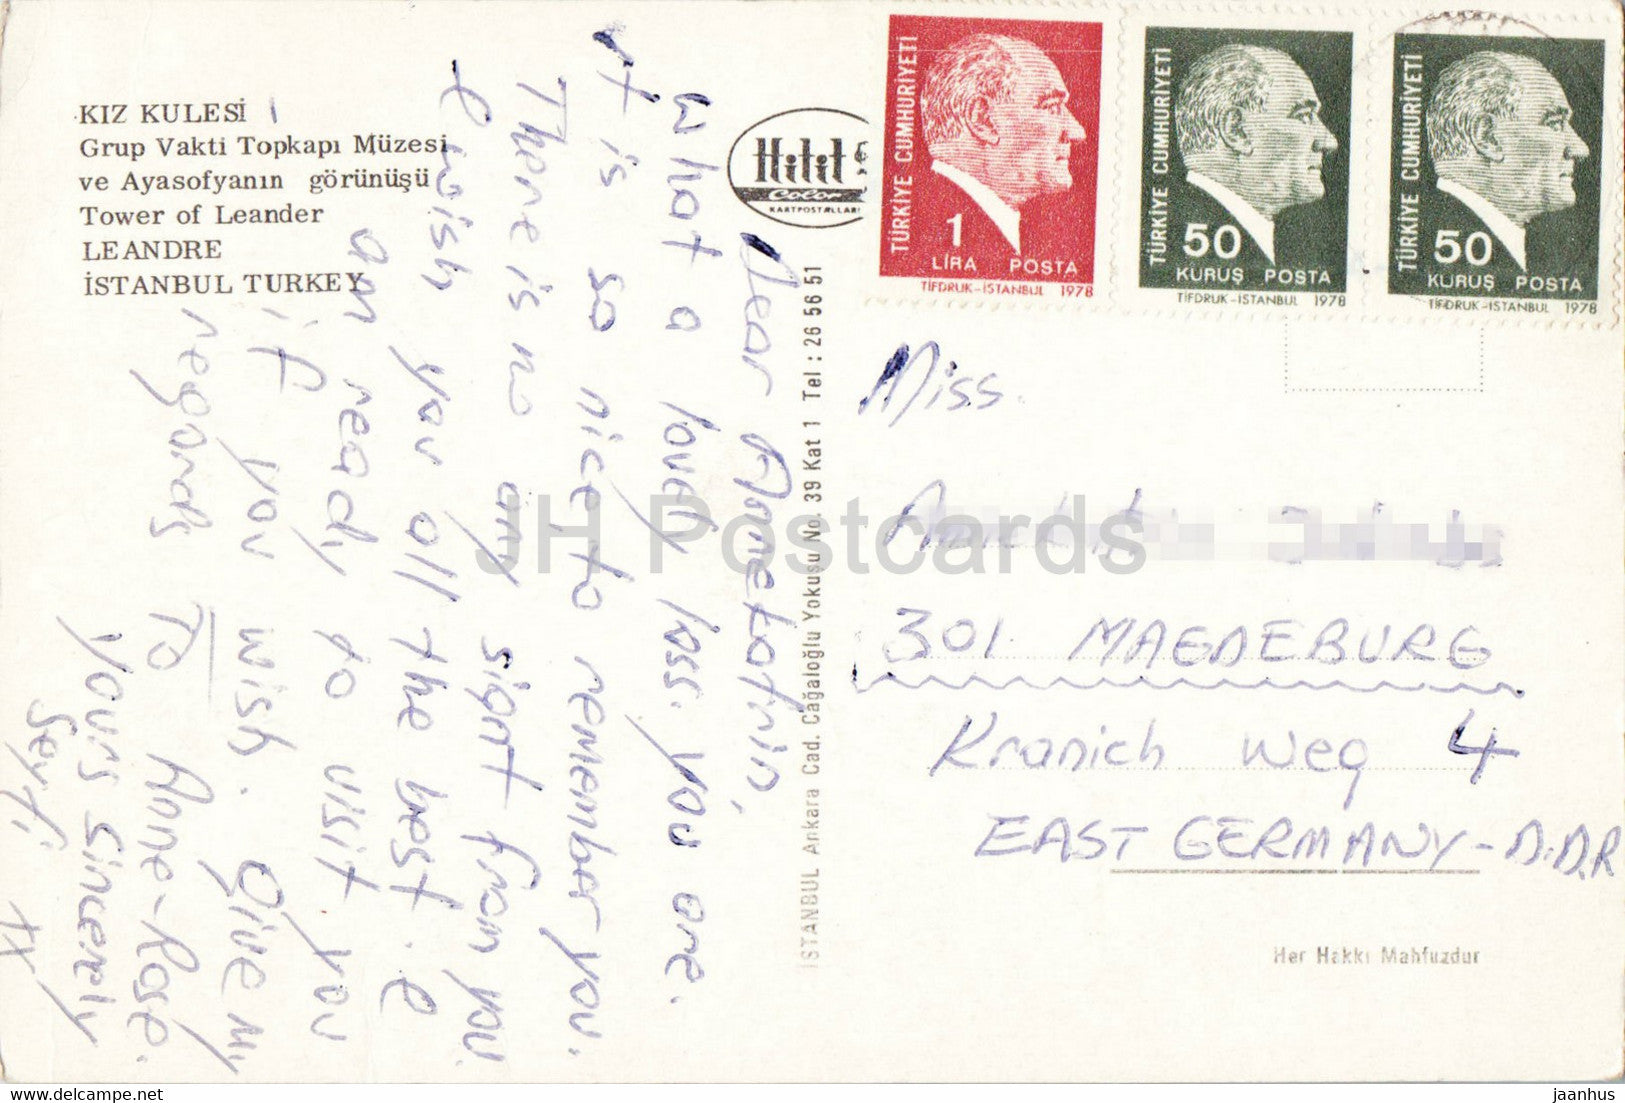 KIZ KULESİ
Grup Vakti Topkapı Müzesi
ve Ayasofyanın görünüşü
Tower of Leander
LEANDRE
İSTANBUL TURKEY
Hilit
Color
KARTPOSTALLARI
İSTANBUL Ankara Cad. Cağaloğlu Yokuşu No. 39 Kat 1 Tel : 26 56 51
TÜRKİYE CUMHURİYETİ
1
LİRA POSTA
TİFDRUK-İSTANBUL 1978
TÜRKİYE CUMHURİYETİ
50
KURUŞ POSTA
TİFDRUK-İSTANBUL 1978
TÜRKİYE CUMHURİYETİ
50
KURUŞ POSTA
TİFDRUK-İSTANBUL 1978
Dear Annetatrin,
What a lovely lass. you are.
it is so nice to remember you.
There is no any signt from you
I wish you all the best. I
am ready to visit you
if you wish. Give my
regards To Anne-Rose.
Yours Sincerely
Seyfi
xx
Miss.
301 MAGDEBURG
Kranich Weg 4
EAST GERMANY - D.D.R
Her Hakkı Mahfuzdur
JH Postcards
jaanhus